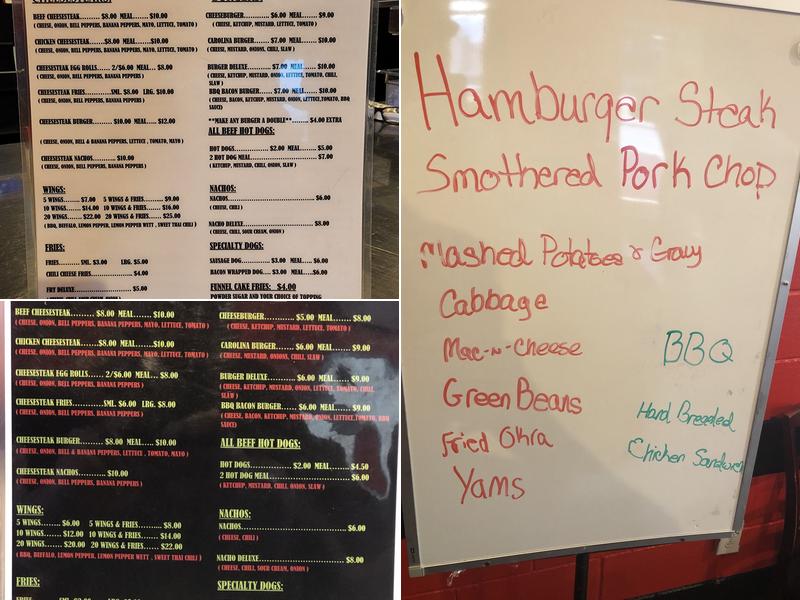 BEEF CHEESESTEAK........$8.00 MEAL......$10.00
( CHEESE, ONION, BELL PEPPERS, BANANA PEPPERS, MAYO, LETTUCE, TOMATO )
CHICKEN CHEESESTEAK.......$8.00 MEAL......$10.00
( CHEESE, ONION, BELL PEPPERS, BANANA PEPPERS, MAYO, LETTUCE, TOMATO )
CHEESESTEAK EGG ROLLS..... 2/$6.00 MEAL... $8.00
( CHEESE, ONION, BELL PEPPERS, BANANA PEPPERS )
CHEESESTEAK FRIES..........SML. $8.00 LRG. $10.00
( CHEESE, ONION, BELL PEPPERS, BANANA PEPPERS )
CHEESESTEAK BURGER..........$10.00 MEAL.....$12.00
( CHEESE, ONION, BELL & BANANA PEPPERS, LETTUCE , TOMATO, MAYO )
CHEESESTEAK NACHOS..........$10.00
( CHEESE, ONION, BELL PEPPERS, BANANA PEPPERS )
WINGS:
5 WINGS.....$7.00 5 WINGS & FRIES.......$9.00
10 WINGS.....$14.00 10 WINGS & FRIES......$16.00
20 WINGS......$22.00 20 WINGS & FRIES......$25.00
( BBQ, BUFFALO, LEMON PEPPER, LEMON PEPPER WETT , SWEET THAI CHILI )
FRIES:
FRIES..........SML. $3.00 LRG. $5.00
CHILI CHEESE FRIES..................$4.00
FRY DELUXE.....................$5.00
CHEESEBURGER.................$6.00 MEAL....$9.00
( CHEESE, KETCHUP, MUSTARD, LETTUCE, TOMATO )
CAROLINA BURGER.......$7.00 MEAL.....$10.00
( CHEESE, MUSTARD, ONIONS, CHILI, SLAW )
BURGER DELUXE.............$7.00 MEAL....$10.00
( CHEESE, KETCHUP, MUSTARD, ONION, LETTUCE, TOMATO, CHILI,
SLAW )
BBQ BACON BURGER.......$7.00 MEAL....$10.00
( CHEESE, BACON, KETCHUP, MUSTARD, ONION, LETTUCE, TOMATO, BBQ
SAUCE)
**MAKE ANY BURGER A DOUBLE**...... $4.00 EXTRA
ALL BEEF HOT DOGS:
HOT DOGS................$2.00 MEAL....$5.00
2 HOT DOG MEAL.......................$7.00
( KETCHUP, MUSTARD, CHILI, ONION, SLAW )
NACHOS:
NACHOS....................................$6.00
( CHEESE, CHILI )
NACHO DELUXE...........................$8.00
( CHEESE, CHILI, SOUR CREAM, ONION )
SPECIALTY DOGS:
SAUSAGE DOG.............$3.00 MEAL....$6.00
BACON WRAPPED DOG.... $3.00 MEAL.....$6.00
FUNNEL CAKE FRIES: $4.00
POWDER SUGAR AND YOUR CHOICE OF TOPPING
BEEF CHEESESTEAK......... $8.00 MEAL......$10.00
( CHEESE, ONION, BELL PEPPERS, BANANA PEPPERS, MAYO, LETTUCE, TOMATO )
CHICKEN CHEESESTEAK.......$8.00 MEAL......$10.00
( CHEESE, ONION, BELL PEPPERS, BANANA PEPPERS, MAYO, LETTUCE, TOMATO )
CHEESESTEAK EGG ROLLS..... 2/$6.00 MEAL... $8.00
( CHEESE, ONION, BELL PEPPERS, BANANA PEPPERS )
CHEESESTEAK FRIES..........SML. $6.00 LRG. $8.00
( CHEESE, ONION, BELL PEPPERS, BANANA PEPPERS )
CHEESESTEAK BURGER..........$8.00 MEAL..... $10.00
( CHEESE, ONION, BELL & BANANA PEPPERS, LETTUCE , TOMATO, MAYO )
CHEESESTEAK NACHOS..........$10.00
( CHEESE, ONION, BELL PEPPERS, BANANA PEPPERS )
WINGS:
5 WINGS......$6.00 5 WINGS & FRIES.......... $8.00
10 WINGS......$12.00 10 WINGS & FRIES........$14.00
20 WINGS.......$20.00 20 WINGS & FRIES......$22.00
( BBQ, BUFFALO, LEMON PEPPER, LEMON PEPPER WETT , SWEET THAI CHILI )
FRIES:
CHEESEBURGER.................$5.00 MEAL......$8.00
( CHEESE, KETCHUP, MUSTARD, LETTUCE, TOMATO )
CAROLINA BURGER.......$6.00 MEAL........$9.00
( CHEESE, MUSTARD, ONIONS, CHILI, SLAW )
BURGER DELUXE.............$6.00 MEAL......$9.00
( CHEESE, KETCHUP, MUSTARD, ONION, LETTUCE, TOMATO, CHILI,
SLAW )
BBQ BACON BURGER.......$6.00 MEAL.....$9.00
( CHEESE, BACON, KETCHUP, MUSTARD, ONION, LETTUCE, TOMATO, BBQ
SAUCE)
ALL BEEF HOT DOGS:
HOT DOGS.................$2.00 MEAL......$4.50
2 HOT DOG MEAL.........................$6.00
( KETCHUP, MUSTARD, CHILI, ONION, SLAW )
NACHOS:
NACHOS......................................$6.00
( CHEESE, CHILI )
NACHO DELUXE.............................$8.00
( CHEESE, CHILI, SOUR CREAM, ONION )
SPECIALTY DOGS:
Hamburger Steak
Smothered Pork Chop
Mashed Potatoes & Gravy
Cabbage
Mac-n-Cheese
Green Beans
Fried Okra
Yams
BBQ
Hand Breaded
Chicken Sandwich